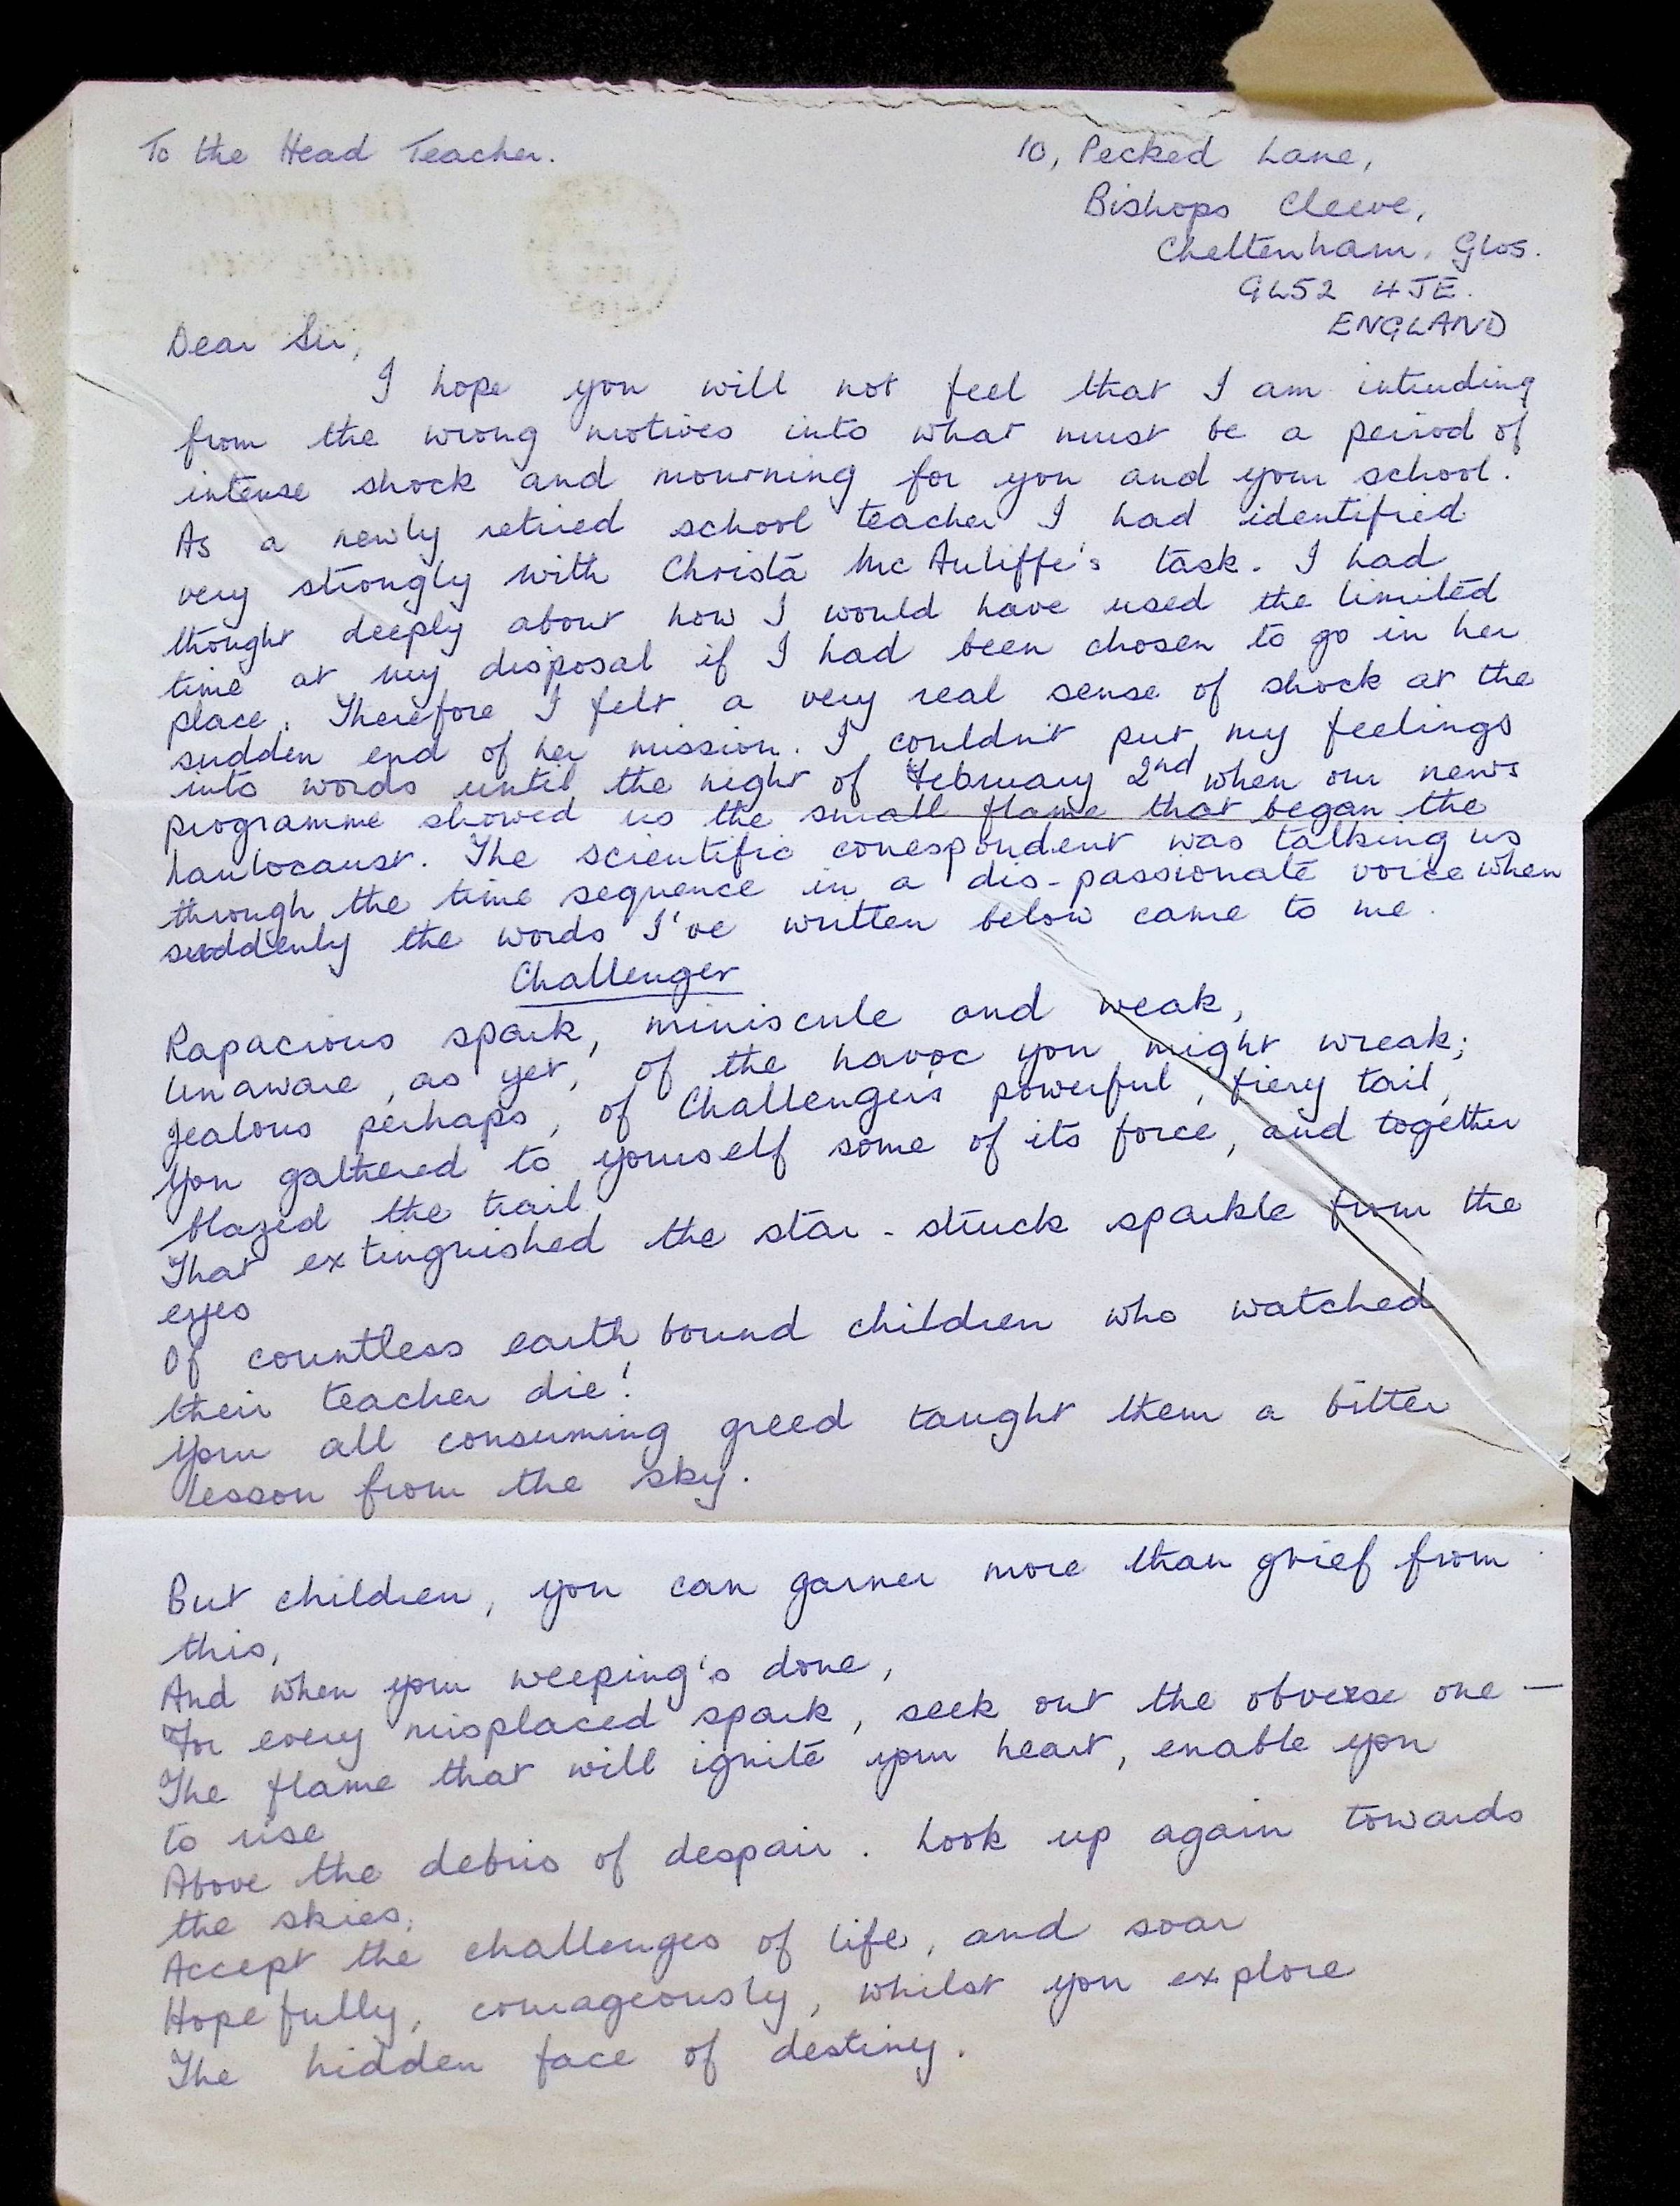 To the Head Teacher.
10, Pecked Lane,
Bishops Cleeve,
Cheltenham, Glos.
GL52 4JE.
ENGLAND
Dear Sir,
I hope you will not feel that I am intruding
from the wrong motives into what must be a period of
intense shock and mourning for you and your school.
As a newly retired school teacher I had identified
very strongly with Christa McAuliffe's task. I had
thought deeply about how I would have used the limited
time at my disposal if I had been chosen to go in her
place. Therefore I felt a very real sense of shock at the
sudden end of her mission. I couldn't put my feelings
into words until the night of February 2nd when our news
programme showed us the small flame that began the
haulocaust. The scientific correspondent was talking us
through the time sequence in a dis-passionate voice when
suddenly the words I've written below came to me.
Challenger
Rapacious spark, miniscule and weak,
Unaware, as yet, of the havoc you might wreak;
Jealous perhaps, of Challenger's powerful, fiery tail,
You gathered to yourself some of its force, and together
blazed the trail
That extinguished the star-struck sparkle from the
eyes
Of countless earthbound children who watched
their teacher die!
Your all consuming greed taught them a bitter
lesson from the sky.
But children, you can garner more than grief from
this,
And when your weeping's done,
For every misplaced spark, seek out the obverse one —
The flame that will ignite your heart, enable you
to rise
Above the debris of despair. Look up again towards
the skies;
Accept the challenges of life, and soar
Hopefully, courageously, whilst you explore
The hidden face of destiny.